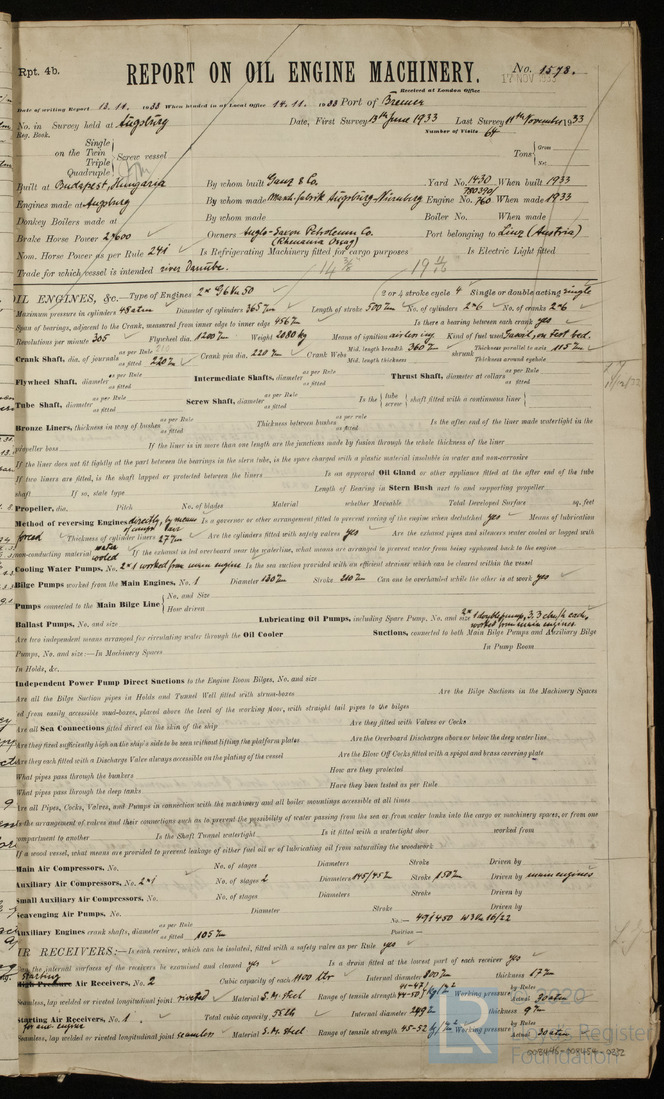 Rpt. 4b.
REPORT ON OIL ENGINE MACHINERY.
No. 1578.
17 NOV 1933
Received at London Office
Date of writing Report 13.11. 1933 When handed in at Local Office 14.11. 1933 Port of Bremen
No. in Survey held at Augsburg Date, First Survey 13th June 1933 Last Survey 11th November 1933
Reg. Book. Number of Visits 64
Single
on the Twin
Triple
Quadruple
Screw vessel
Tons Gross
Net
Built at Budapest, Hungaria By whom built Ganz & Co. Yard No. 1430 When built 1933
Engines made at Augsburg By whom made Masch. fabrik Augsburg-Nürnberg Engine No. 780390/760 When made 1933
Donkey Boilers made at By whom made Boiler No. When made
Brake Horse Power 2×600 Owners Anglo-Saxon Petroleum Co. Port belonging to Linz (Austria)
Nom. Horse Power as per Rule 241 Is Refrigerating Machinery fitted for cargo purposes Is Electric Light fitted
Trade for which vessel is intended river Danube.
OIL ENGINES, &c.—Type of Engines 2× G6Vu50 2 or 4 stroke cycle 4 Single or double acting single
Maximum pressure in cylinders 48 atm Diameter of cylinders 365 Length of stroke 500 No. of cylinders 2×6 No. of cranks 2×6
Span of bearings, adjacent to the Crank, measured from inner edge to inner edge 456 Is there a bearing between each crank yes
Revolutions per minute 305 Flywheel dia. 1200 Weight 2080 kg Means of ignition Kind of fuel used
Crank Shaft, dia. of journals as per Rule as fitted 220 Crank pin dia. 220 Crank Webs Mid. length breadth 360 Mid. length thickness shrunk Thickness parallel to axis 115 Thickness around eyehole
Flywheel Shaft, diameter as per Rule as fitted Intermediate Shafts, diameter as per Rule as fitted Thrust Shaft, diameter at collars as per Rule as fitted
Tube Shaft, diameter as per Rule as fitted Screw Shaft, diameter as per Rule as fitted Is the tube screw shaft fitted with a continuous liner
Bronze Liners, thickness in way of bushes as per Rule as fitted Thickness between bushes as per rule as fitted Is the after end of the liner made watertight in the
propeller boss If the liner is in more than one length are the junctions made by fusion through the whole thickness of the liner
If the liner does not fit tightly at the part between the bearings in the stern tube, is the space charged with a plastic material insoluble in water and non-corrosive
If two liners are fitted, is the shaft lapped or protected between the liners Is an approved Oil Gland or other appliance fitted at the after end of the tube
shaft If so, state type Length of Bearing in Stern Bush next to and supporting propeller
Propeller, dia. Pitch No. of blades Material whether Moveable Total Developed Surface sq. feet
Method of reversing Engines directly, by means of compr. air Is a governor or other arrangement fitted to prevent racing of the engine when declutched yes Means of lubrication
forced Thickness of cylinder liners 27 Are the cylinders fitted with safety valves yes Are the exhaust pipes and silencers water cooled or lagged with
non-conducting material water cooled If the exhaust is led overboard near the waterline, what means are arranged to prevent water from being syphoned back to the engine
Cooling Water Pumps, No. 2×1 worked from main engine Is the sea suction provided with an efficient strainer which can be cleared within the vessel
Bilge Pumps worked from the Main Engines, No. 1 Diameter 130 Stroke 210 Can one be overhauled while the other is at work yes
Pumps connected to the Main Bilge Line No. and Size
How driven
Ballast Pumps, No. and size Lubricating Oil Pumps, including Spare Pump, No. and size worked from main engines
Are two independent means arranged for circulating water through the Oil Cooler Suctions, connected to both Main Bilge Pumps and Auxiliary Bilge
Pumps, No. and size:—In Machinery Spaces In Pump Room
In Holds, &c.
Independent Power Pump Direct Suctions to the Engine Room Bilges, No. and size
Are all the Bilge Suction pipes in Holds and Tunnel Well fitted with strum-boxes Are the Bilge Suctions in the Machinery Spaces
led from easily accessible mud-boxes, placed above the level of the working floor, with straight tail pipes to the bilges
Are all Sea Connections fitted direct on the skin of the ship Are they fitted with Valves or Cocks
Are they fixed sufficiently high on the ship's side to be seen without lifting the platform plates Are the Overboard Discharges above or below the deep water line
Are they each fitted with a Discharge Valve always accessible on the plating of the vessel Are the Blow Off Cocks fitted with a spigot and brass covering plate
What pipes pass through the bunkers How are they protected
What pipes pass through the deep tanks Have they been tested as per Rule
Are all Pipes, Cocks, Valves, and Pumps in connection with the machinery and all boiler mountings accessible at all times
Is the arrangement of valves and their connections such as to prevent the possibility of water passing from the sea or from water tanks into the cargo or machinery spaces, or from one
compartment to another Is the Shaft Tunnel watertight Is it fitted with a watertight door worked from
If a wood vessel, what means are provided to prevent leakage of either fuel oil or of lubricating oil from saturating the woodwork
Main Air Compressors, No. No. of stages Diameters Stroke Driven by
Auxiliary Air Compressors, No. 2×1 No. of stages 2 Diameters 145/45 Stroke 150 Driven by main engines
Small Auxiliary Air Compressors, No. No. of stages Diameters Stroke Driven by
Scavenging Air Pumps, No. Diameter Stroke Driven by
Auxiliary Engines crank shafts, diameter as per Rule as fitted 105 No. — 491450 W3V 16/22
Position —
AIR RECEIVERS:—Is each receiver, which can be isolated, fitted with a safety valve as per Rule yes
Can the internal surfaces of the receivers be examined and cleaned yes Is a drain fitted at the lowest part of each receiver yes
Starting
High Pressure Air Receivers, No. 2 Cubic capacity of each 1100 ltr Internal diameter 800 thickness 17
Seamless, lap welded or riveted longitudinal joint riveted Material S.M. steel Range of tensile strength Working pressure by Rules Actual 30 atm
Starting Air Receivers, No. 1 Total cubic capacity Internal diameter thickness 9
Seamless, lap welded or riveted longitudinal joint seamless Material S.M. Steel Range of tensile strength 45-52 Working pressure by Rules Actual 30 atm
LR
2020
Lloyd's Register
Foundation